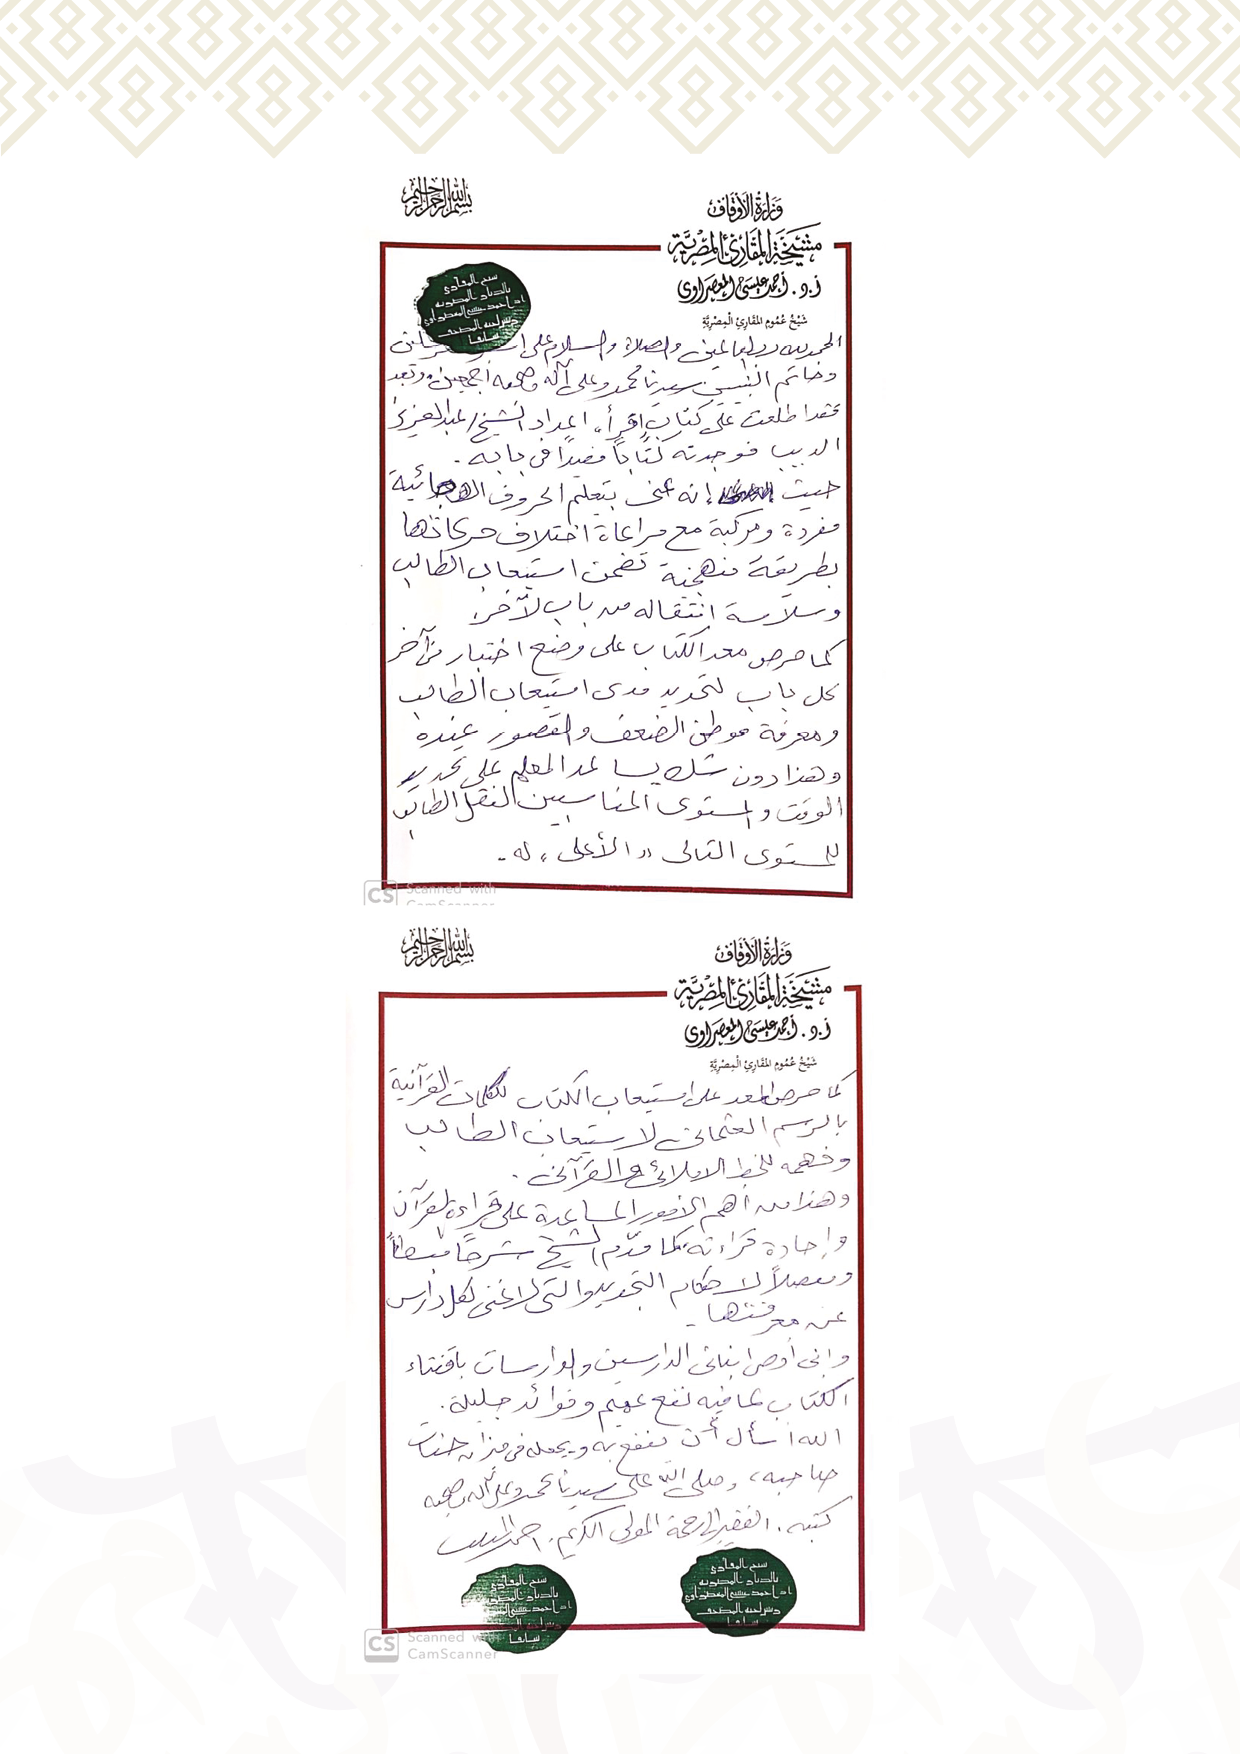 بسم الله الرحمن الرحيم
وزارة الأوقاف
مشيخة المقارئ المصرية
أ.د. أحمد عيسى المعصراوي
شيخ عموم المقارئ المصرية
شيخ المقارئ
بالديار المصرية
أ.د احمد عيسى المعصراوي
ورئيس لجنة المصحف
سابقا
الحمد لله رب العالمين والصلاة والسلام على
وخاتم النبيين سيدنا محمد وعلى آله وصحبه أجمعين، وبعد
فقد اطلعت على كتاب إقرأ، إعداد الشيخ/ عبد العزيز
الديب فوجدته كتاباً مفيداً في بابه.
حيث إنه عنى بتعليم الحروف الهجائية
مفردة ومركبة مع مراعاة اختلاف حركاتها
بطريقة منهجية تضمن استيعاب الطالب
وسلاسة انتقاله من باب لآخر.
كما حرص معد الكتاب على وضع اختبار في آخر
كل باب لتحديد مدى استيعاب الطالب
ومعرفة موطن الضعف والقصور عنده
وهذا دون شك يساعد المعلم على تحديد
الوقت والمستوى المناسبين لنقل الطالب
للمستوى التالى "الأعلى" له.
CS Scanned with
CamScanner
بسم الله الرحمن الرحيم
وزارة الأوقاف
مشيخة المقارئ المصرية
أ.د. أحمد عيسى المعصراوي
شيخ عموم المقارئ المصرية
كما حرص المعد على استيعاب الكتاب للكلمات القرآنية
بالرسم العثمانى لاستيعاب الطالب
وفهمه للخط الاملائي والقرآنى.
وهذا من أهم الأمور المساعدة على قراءة القرآن
وإجادة قراءته، كما قدّم الشيخ شرحاً مبسطاً
ومفصلاً لأحكام التجويد والتى لا غنى لكل دارس
عن معرفتها.
وإنى أوصى أبنائى الدارسين والدارسات باقتناء
الكتاب لما فيه نفع عميم وفوائد جليلة.
الله أسأل أن ينفع به ويجعله في ميزان حسنات
صاحبه، وصلى الله على سيدنا محمد وعلى آله وصحبه
كتبه. الفقير إلى رحمة المولى الكريم.
شيخ المقارئ
بالديار المصرية
أ.د احمد عيسى المعصراوي
ورئيس لجنة المصحف
سابقا
شيخ المقارئ
بالديار المصرية
أ.د احمد عيسى
سابقا
CS Scanned with
CamScanner